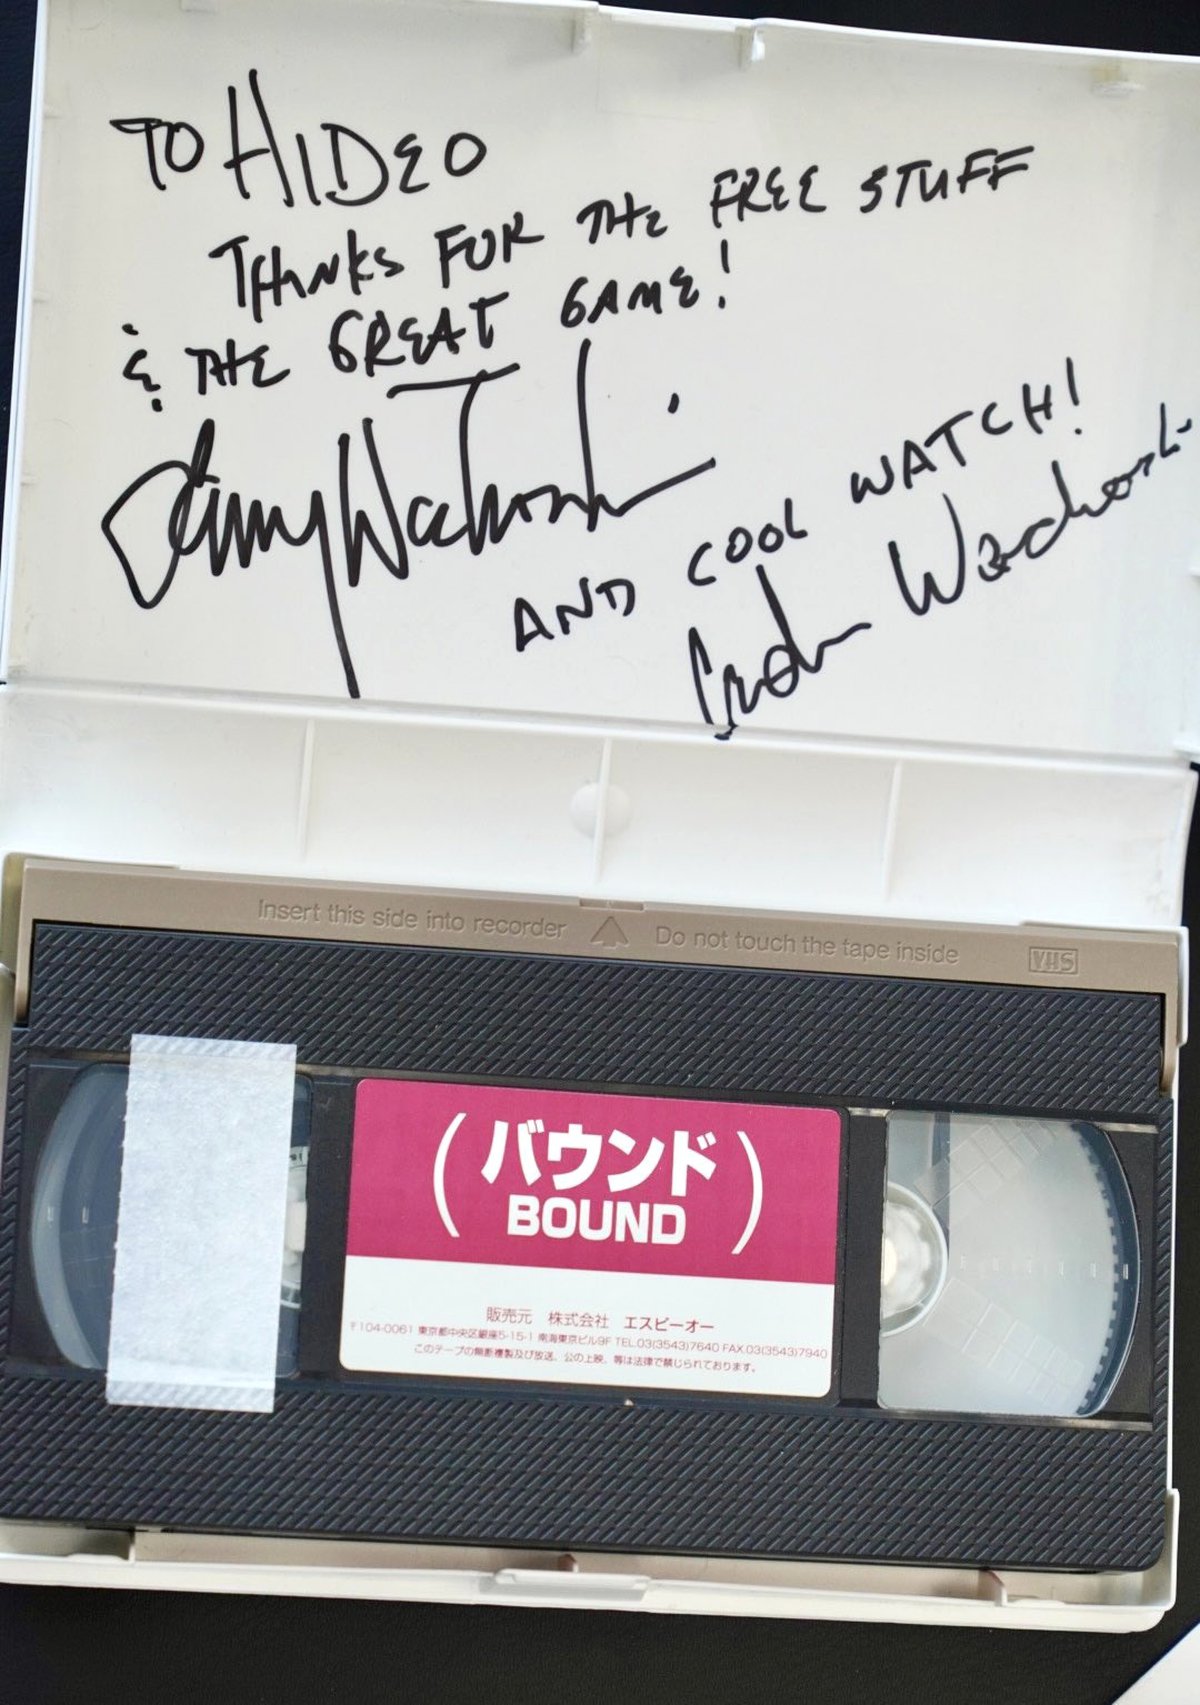 TO HIDEO
THANKS FOR THE FREE STUFF
& THE GREAT GAME!
AND COOL WATCH!
Insert this side into recorder Do not touch the tape inside VHS
(バウンド)
BOUND
販売元 株式会社 エスピーオー
〒104-0061 東京都中央区銀座5-15-1 南海東京ビル9F TEL.03(3543)7640 FAX.03(3543)7940
このテープの無断複製及び放送、公の上映、等は法律で禁じられております。